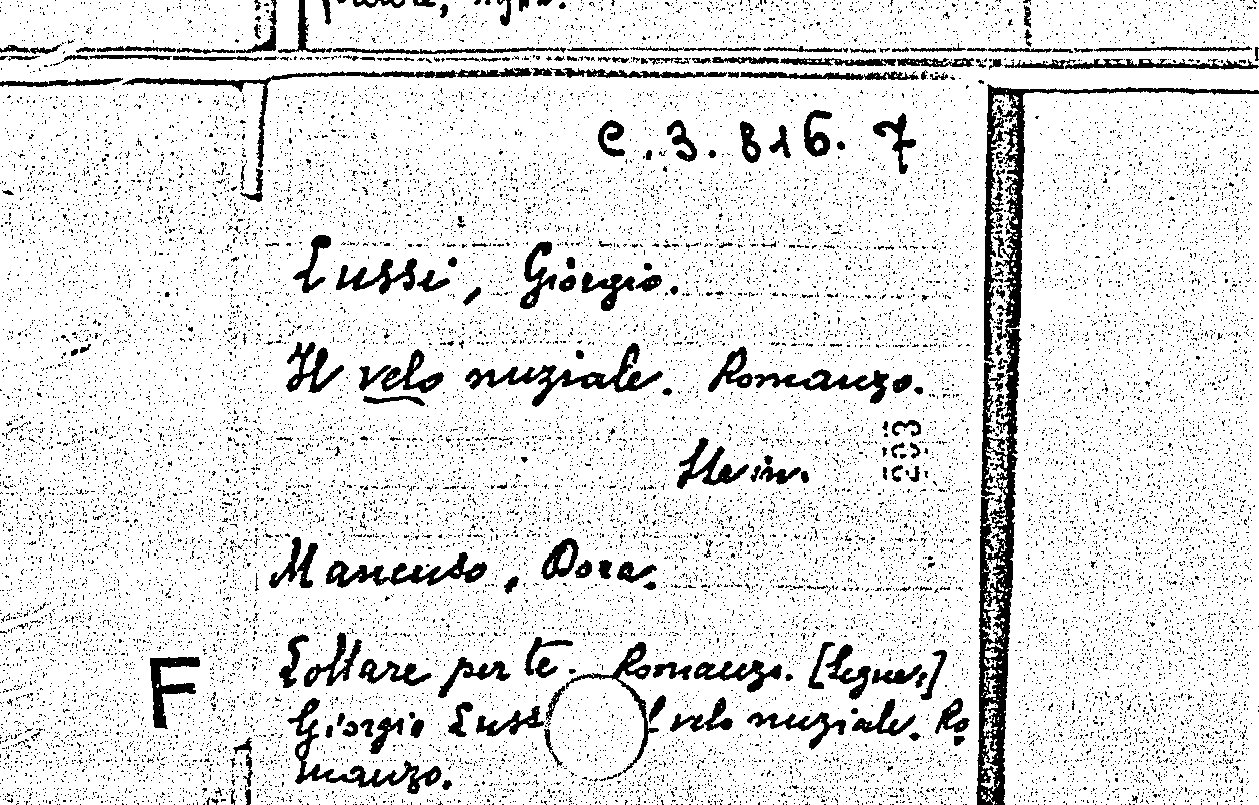 C.3.816.7
Lussi, Giorgio.
Il velo nuziale. Romanzo.
In:
Mancuso, Dora.
Lottare per te. Romanzo. [Segue:]
F
Giorgio Luss l velo nuziale. Ro
manzo.